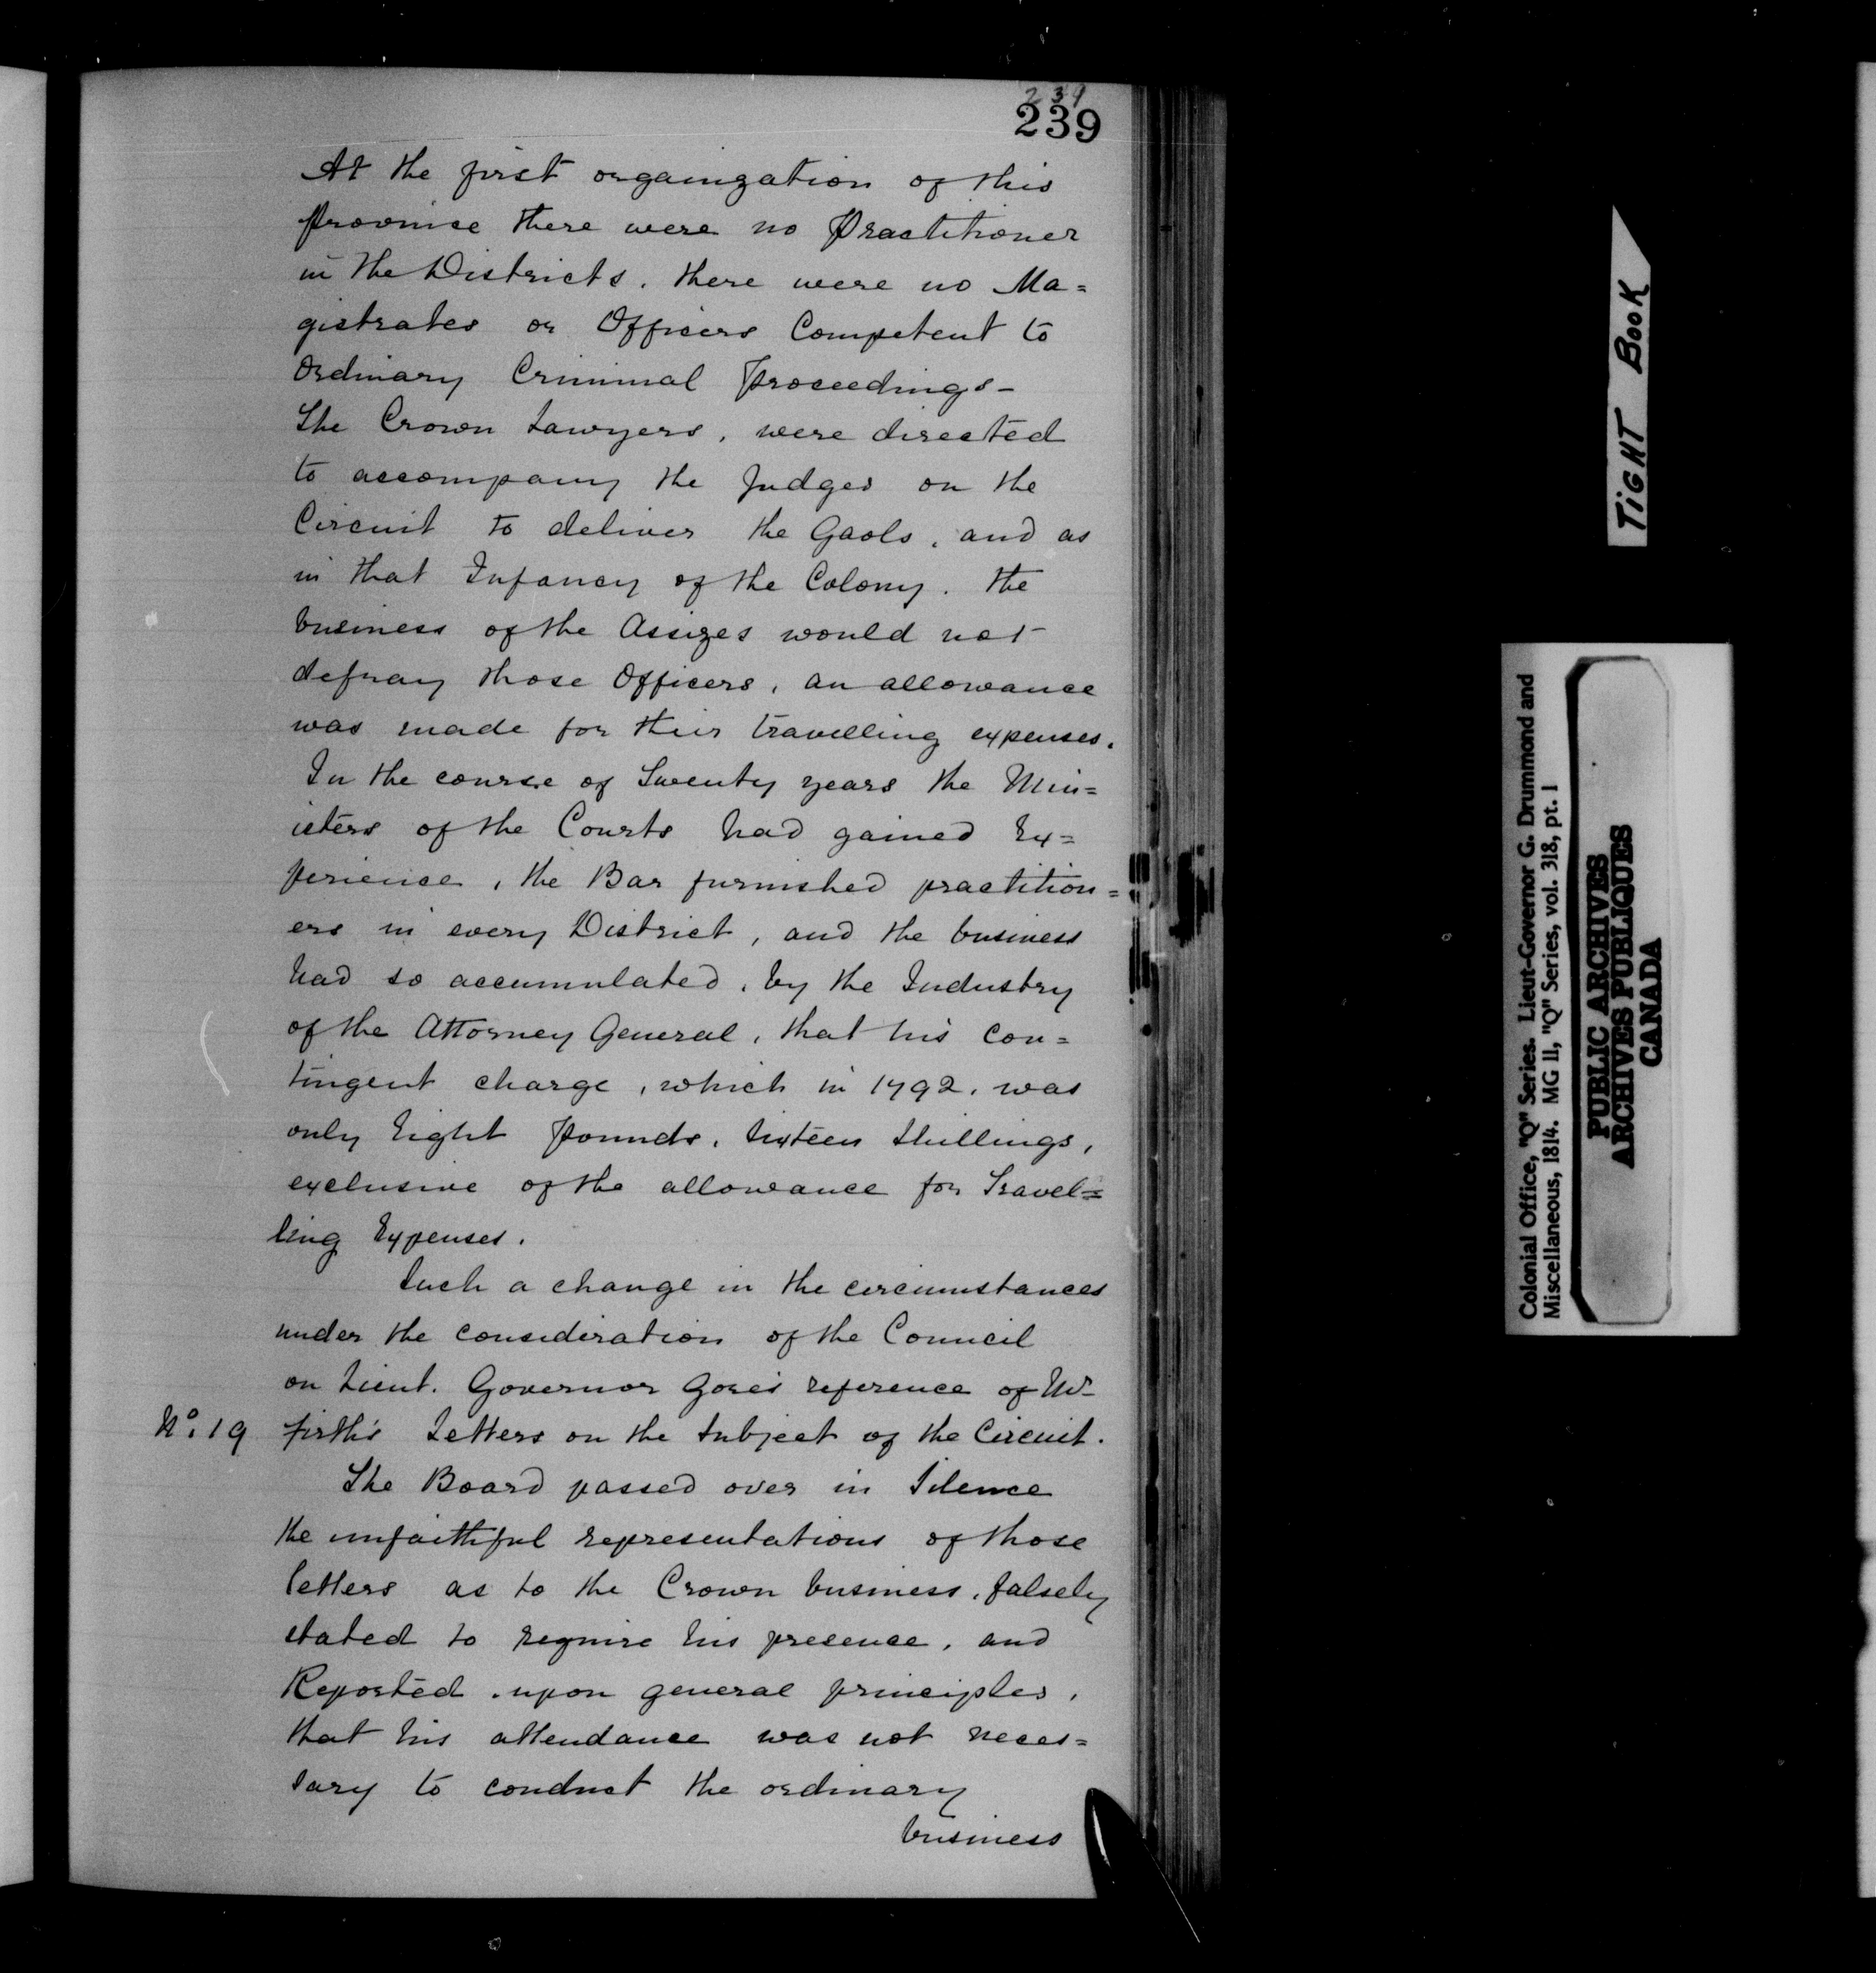 239
239
At the first organization of this
Province there were no Practitioner
in the Districts, there were no Ma=
gistrates or Officers Competent to
Ordinary Criminal Proceedings –
The Crown Lawyers, were directed
to accompany the Judges on the
Circuit to deliver the Gaols, and as
in that Infancy of the Colony, the
business of the Assizes would not
defray those Officers, an allowance
was made for their travelling expenses.
In the course of Twenty years the Min=
isters of the Courts had gained Ex=
perience, the Bar furnished practition=
ers in every District, and the business
had so accumulated, by the Industry
of the Attorney General, that his Con=
tingent charge, which in 1792, was
only Eight Pounds, Sixteen Shillings,
exclusive of the allowance for Travel=
ling Expenses.
Such a change in the circumstances
under the consideration of the Council
on Lieut. Governor Gore's reference of Mr
No. 19 Firth's Letters on the Subject of the Circuit.
The Board passed over in Silence
the unfaithful representations of those
letters as to the Crown business, falsely
stated to require his presence, and
Reported, upon general principles,
that his attendance was not neces=
sary to conduct the ordinary
business
TIGHT BOOK
Colonial Office, "Q" Series. Lieut-Governor G. Drummond and
Miscellaneous, 1814. MG 11, "Q" Series, vol. 318, pt. 1
PUBLIC ARCHIVES
ARCHIVES PUBLIQUES
CANADA